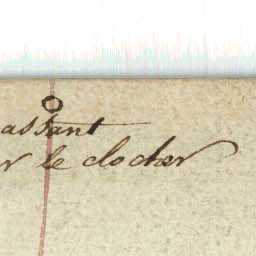 assant
r le clocher